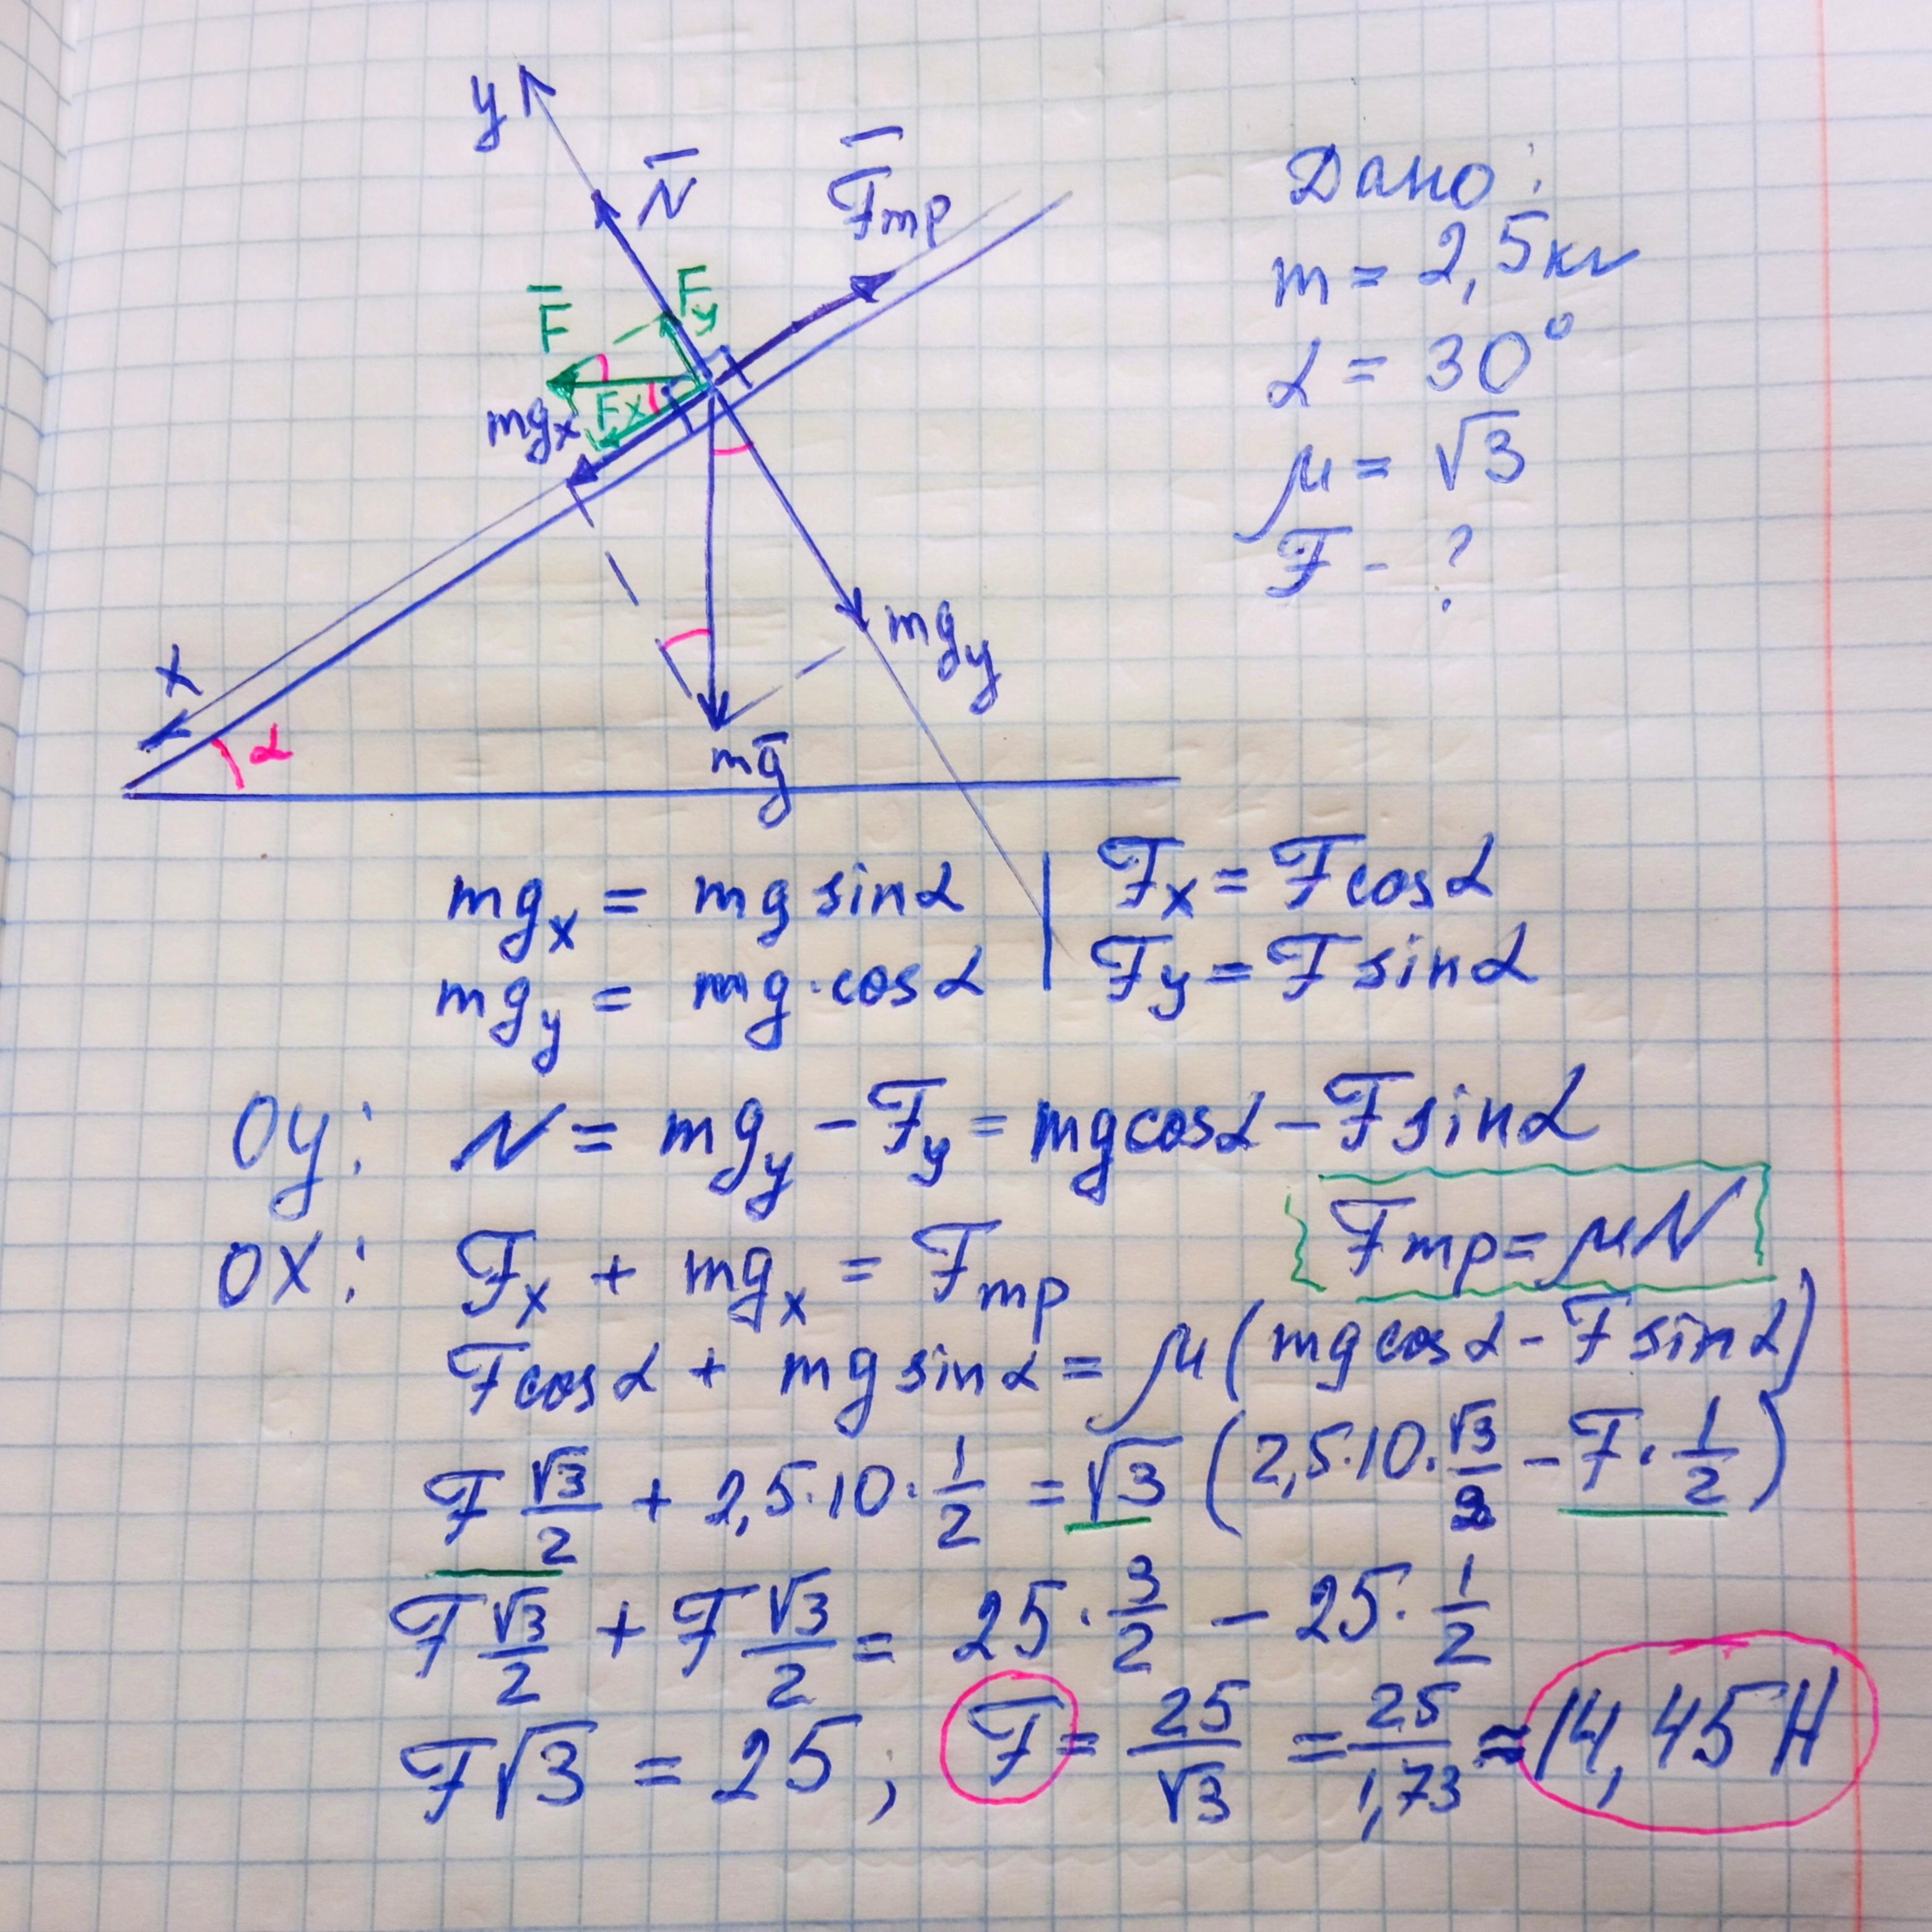 y
N̅
F̅тр
F̅
Fy
mgx
Fx
mgy
x
α
mg̅
Дано:
m = 2,5кг
α = 30°
μ = √3
F - ?
mgx = mg sinα | Fx = Fcosα
mgy = mg·cosα | Fy = Fsinα
Oy: N = mgy - Fy = mgcosα - Fsinα
Fтр = μN
OX: Fx + mgx = Fтр
Fcosα + mg sinα = μ(mgcosα - Fsinα)
F √3/2 + 2,5·10·1/2 = √3 (2,5·10·√3/2 - F·1/2)
F √3/2 + F √3/2 = 25·3/2 - 25·1/2
F√3 = 25; F = 25/√3 = 25/1,73 ≈ 14,45Н